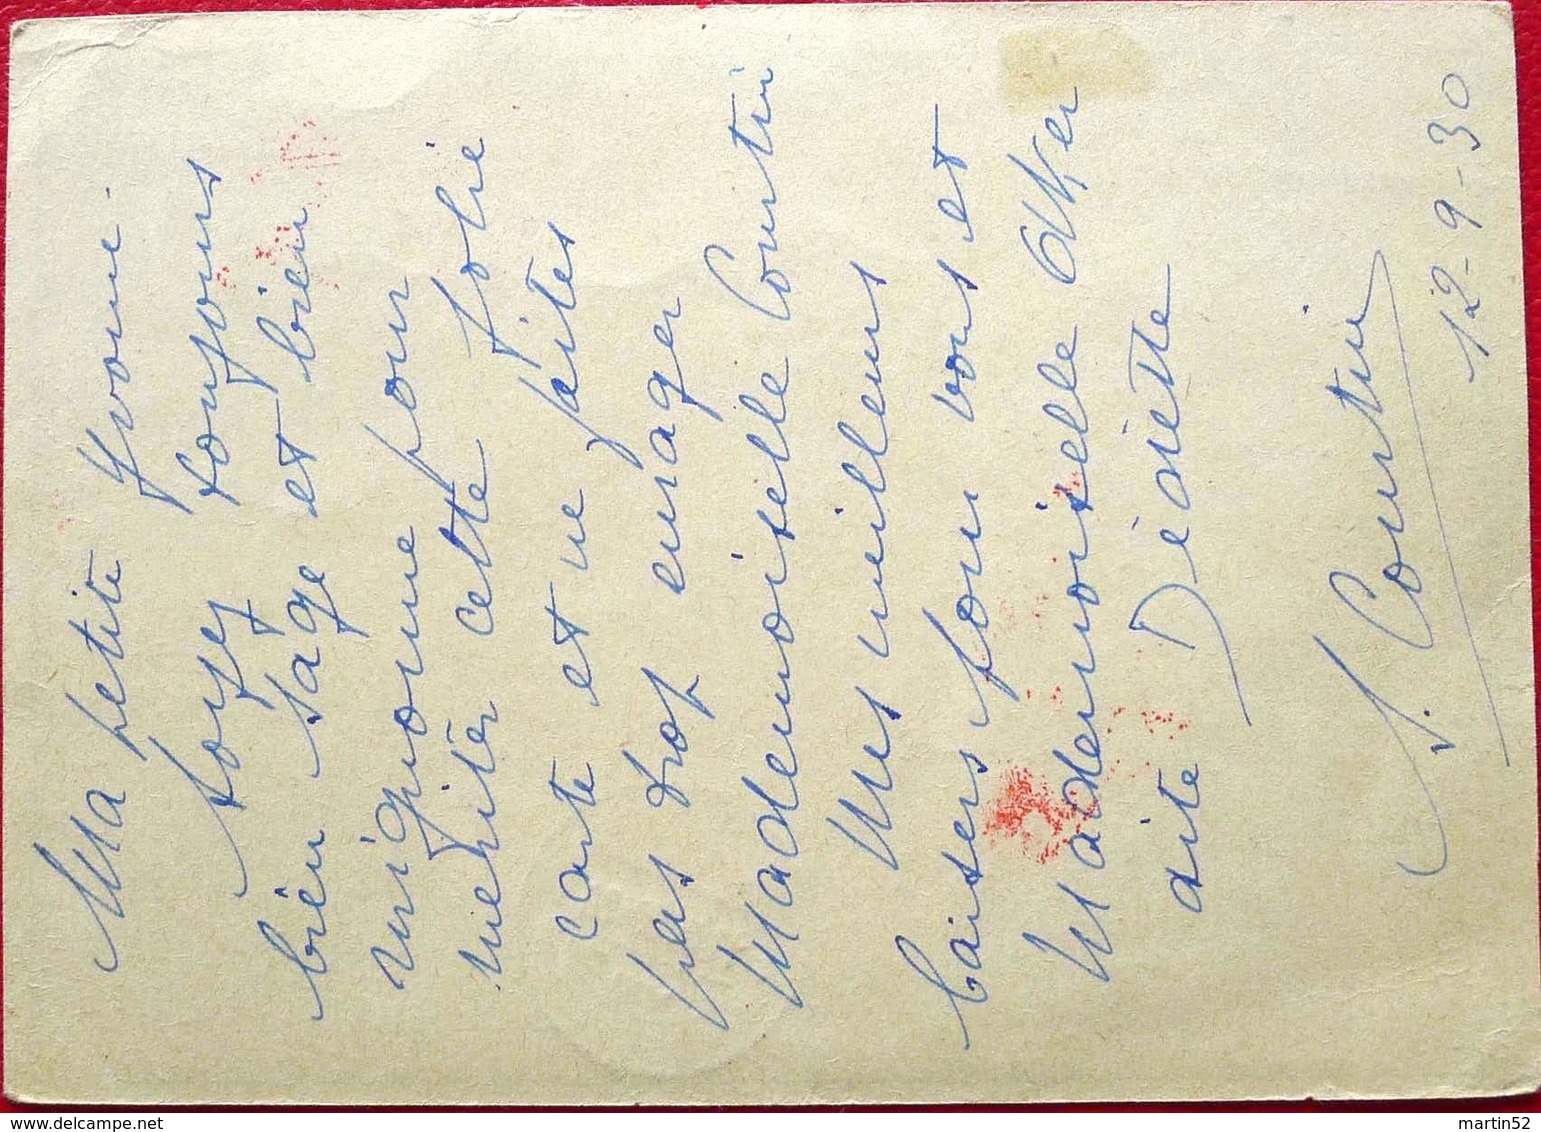 Ma petite Yvonne.
Soyez toujours
bien sage et bien
mignonne pour
mériter cette jolie
carte et ne faites
pas trop enrager
Mademoiselle Courtin
Mes meilleurs
baisers pour vous et
Mademoiselle
dite Dédette
S. Courtin
12-9-30
martin52